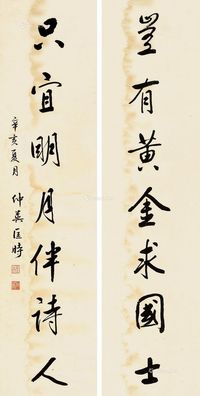 岂有黄金求國士
只宜明月伴詩人
辛亥夏月
仲英匡時